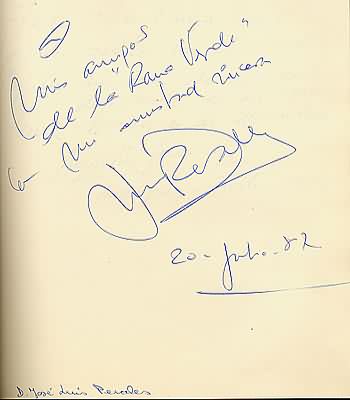 A
mis amigos
de la "Rana Verde"
con mi amistad sincera
20-Julio-82
D. José Luis Perales